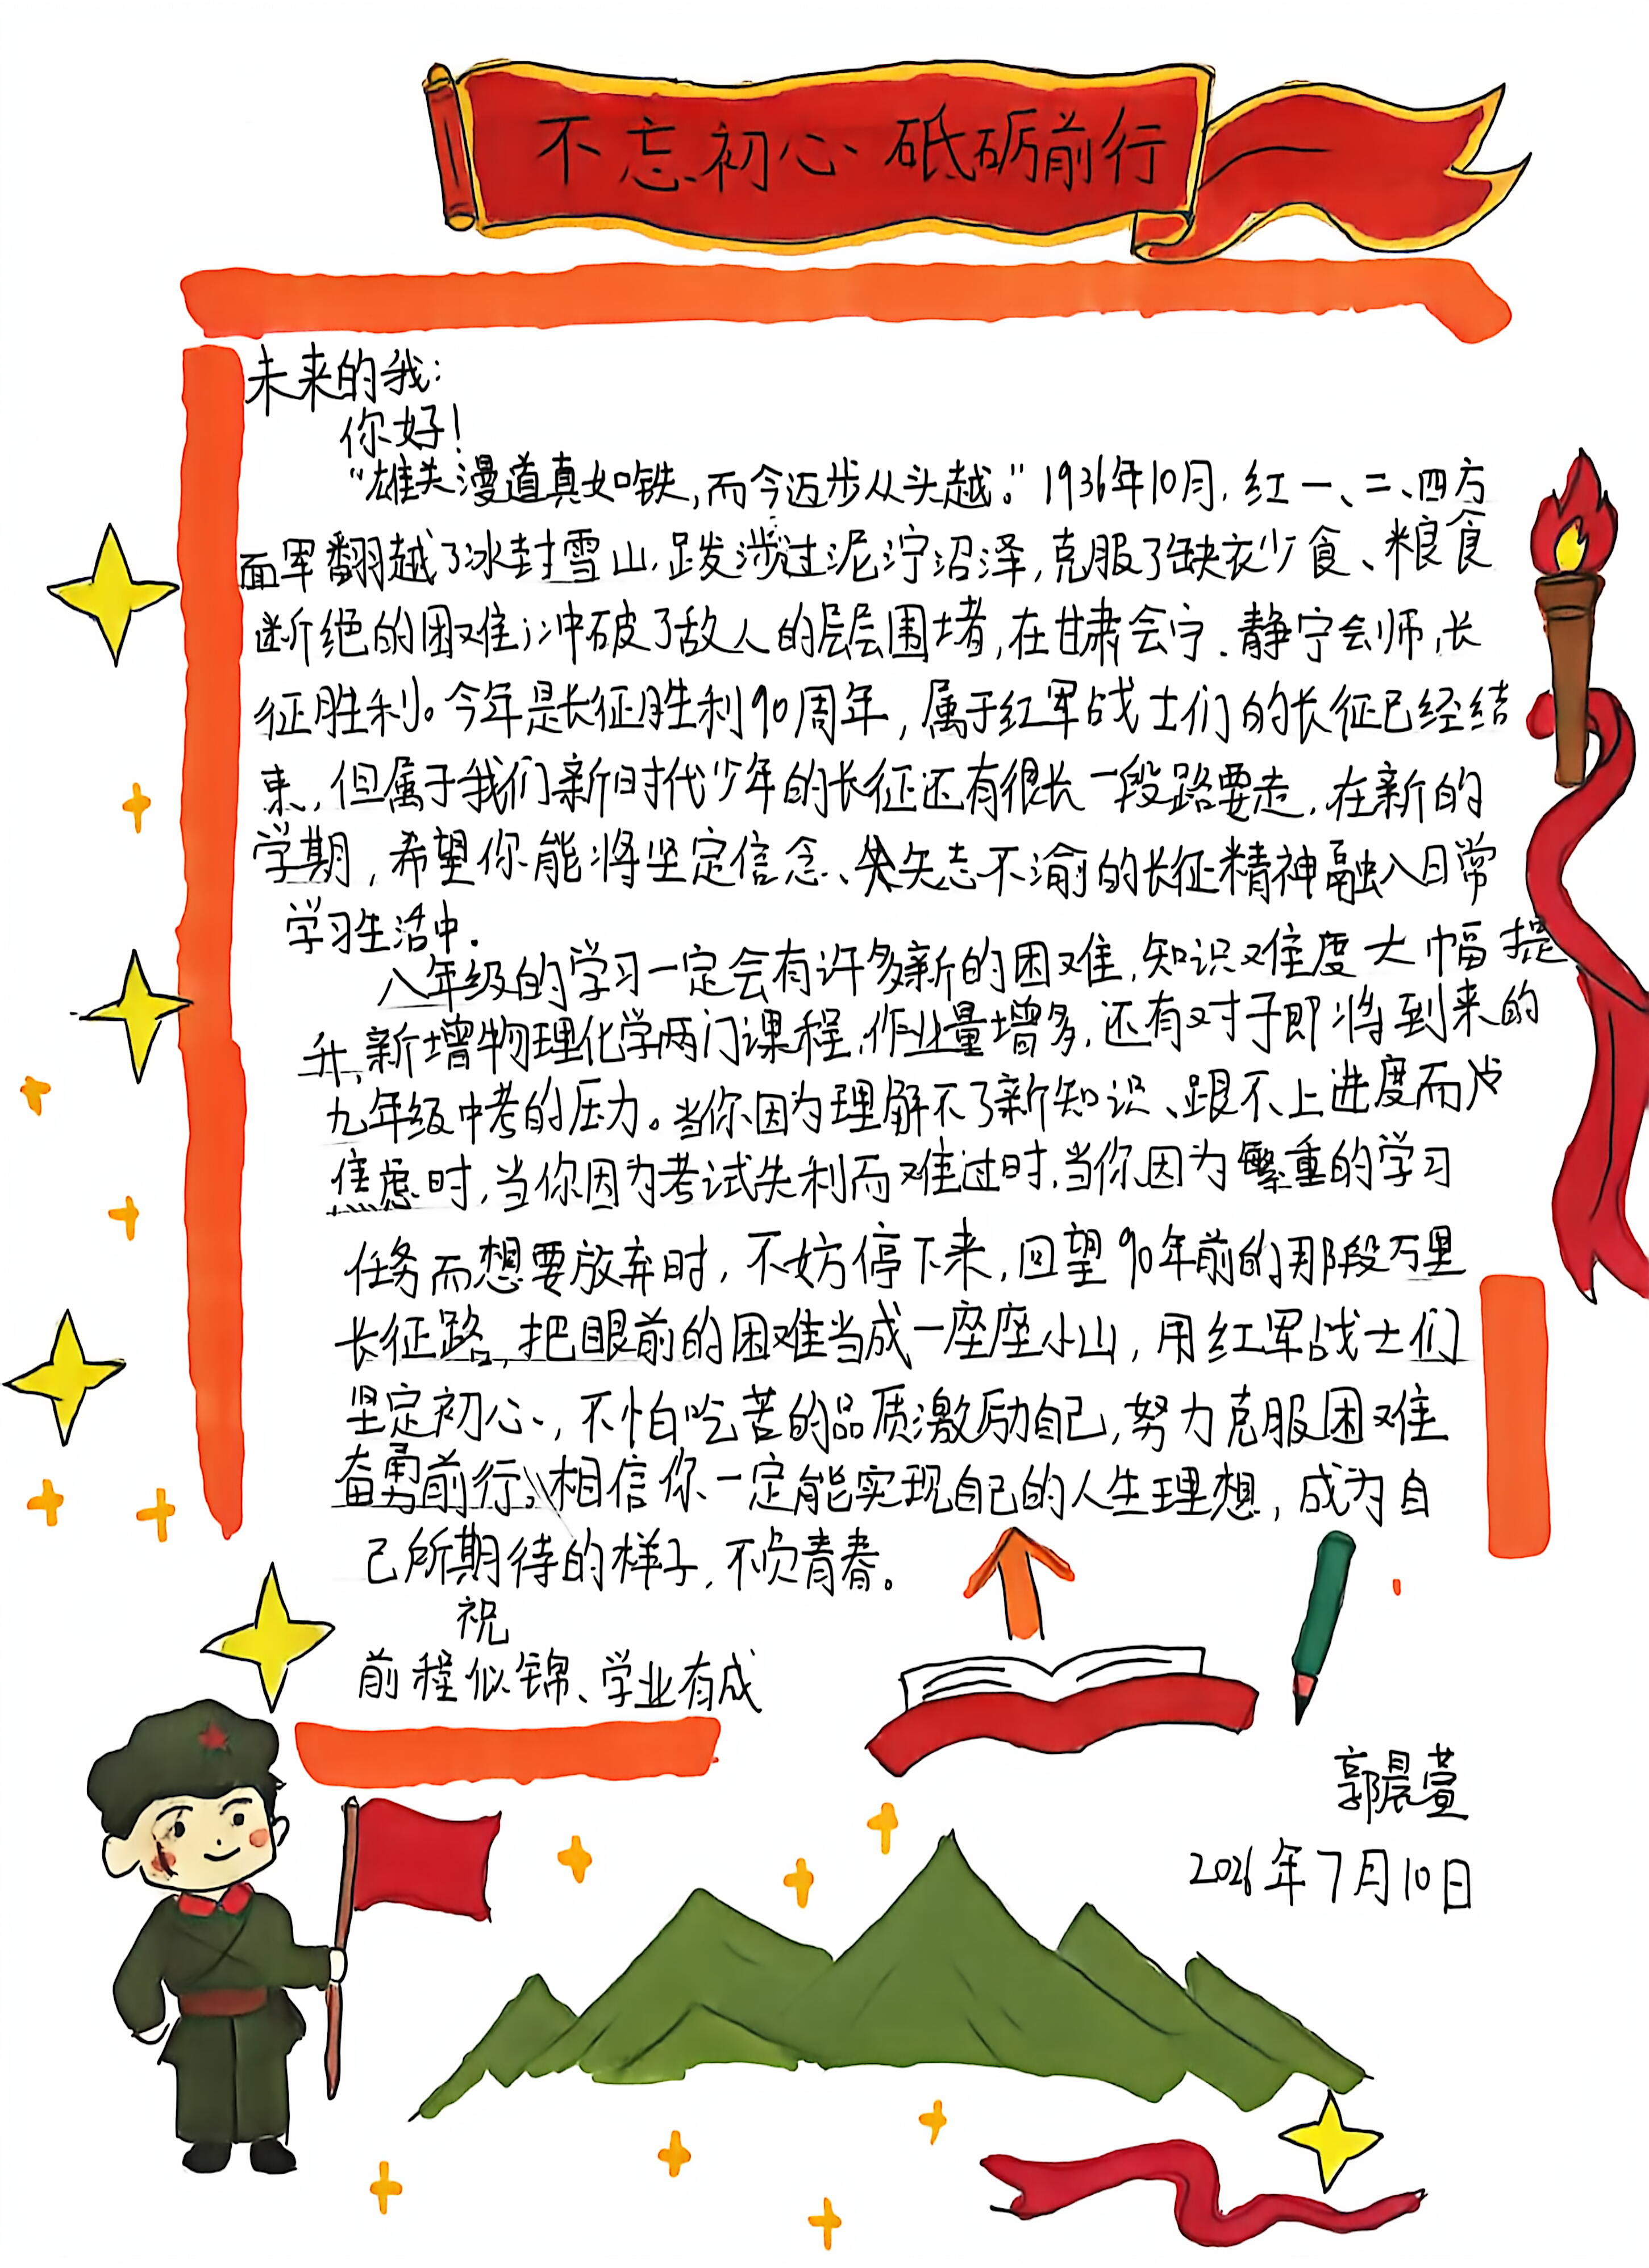 不忘初心 砥砺前行
未来的我：
你好！
“雄关漫道真如铁，而今迈步从头越。”1936年10月，红一、二、四方
面军翻越了冰封雪山，跋涉过泥泞沼泽，克服了缺衣少食、粮食
断绝的困难；冲破了敌人的层层围堵，在甘肃会宁、静宁会师，长
征胜利。今年是长征胜利90周年，属于红军战士们的长征已经结
束，但属于我们新时代少年的长征还有很长一段路要走，在新的
学期，希望你能将坚定信念、矢志不渝的长征精神融入日常
学习生活中。
八年级的学习一定会有许多新的困难，知识难度大幅提
升，新增物理化学两门课程，作业量增多，还有对于即将到来的
九年级中考的压力。当你因为理解不了新知识、跟不上进度而
焦虑时，当你因为考试失利而难过时，当你因为繁重的学习
任务而想要放弃时，不妨停下来，回望90年前的那段万里
长征路，把眼前的困难当成一座座小山，用红军战士们
坚定初心，不怕吃苦的品质激励自己，努力克服困难
奋勇前行。相信你一定能实现自己的人生理想，成为自
己所期待的样子，不负青春。
祝
前程似锦、学业有成
郭晨萱
2026年7月10日